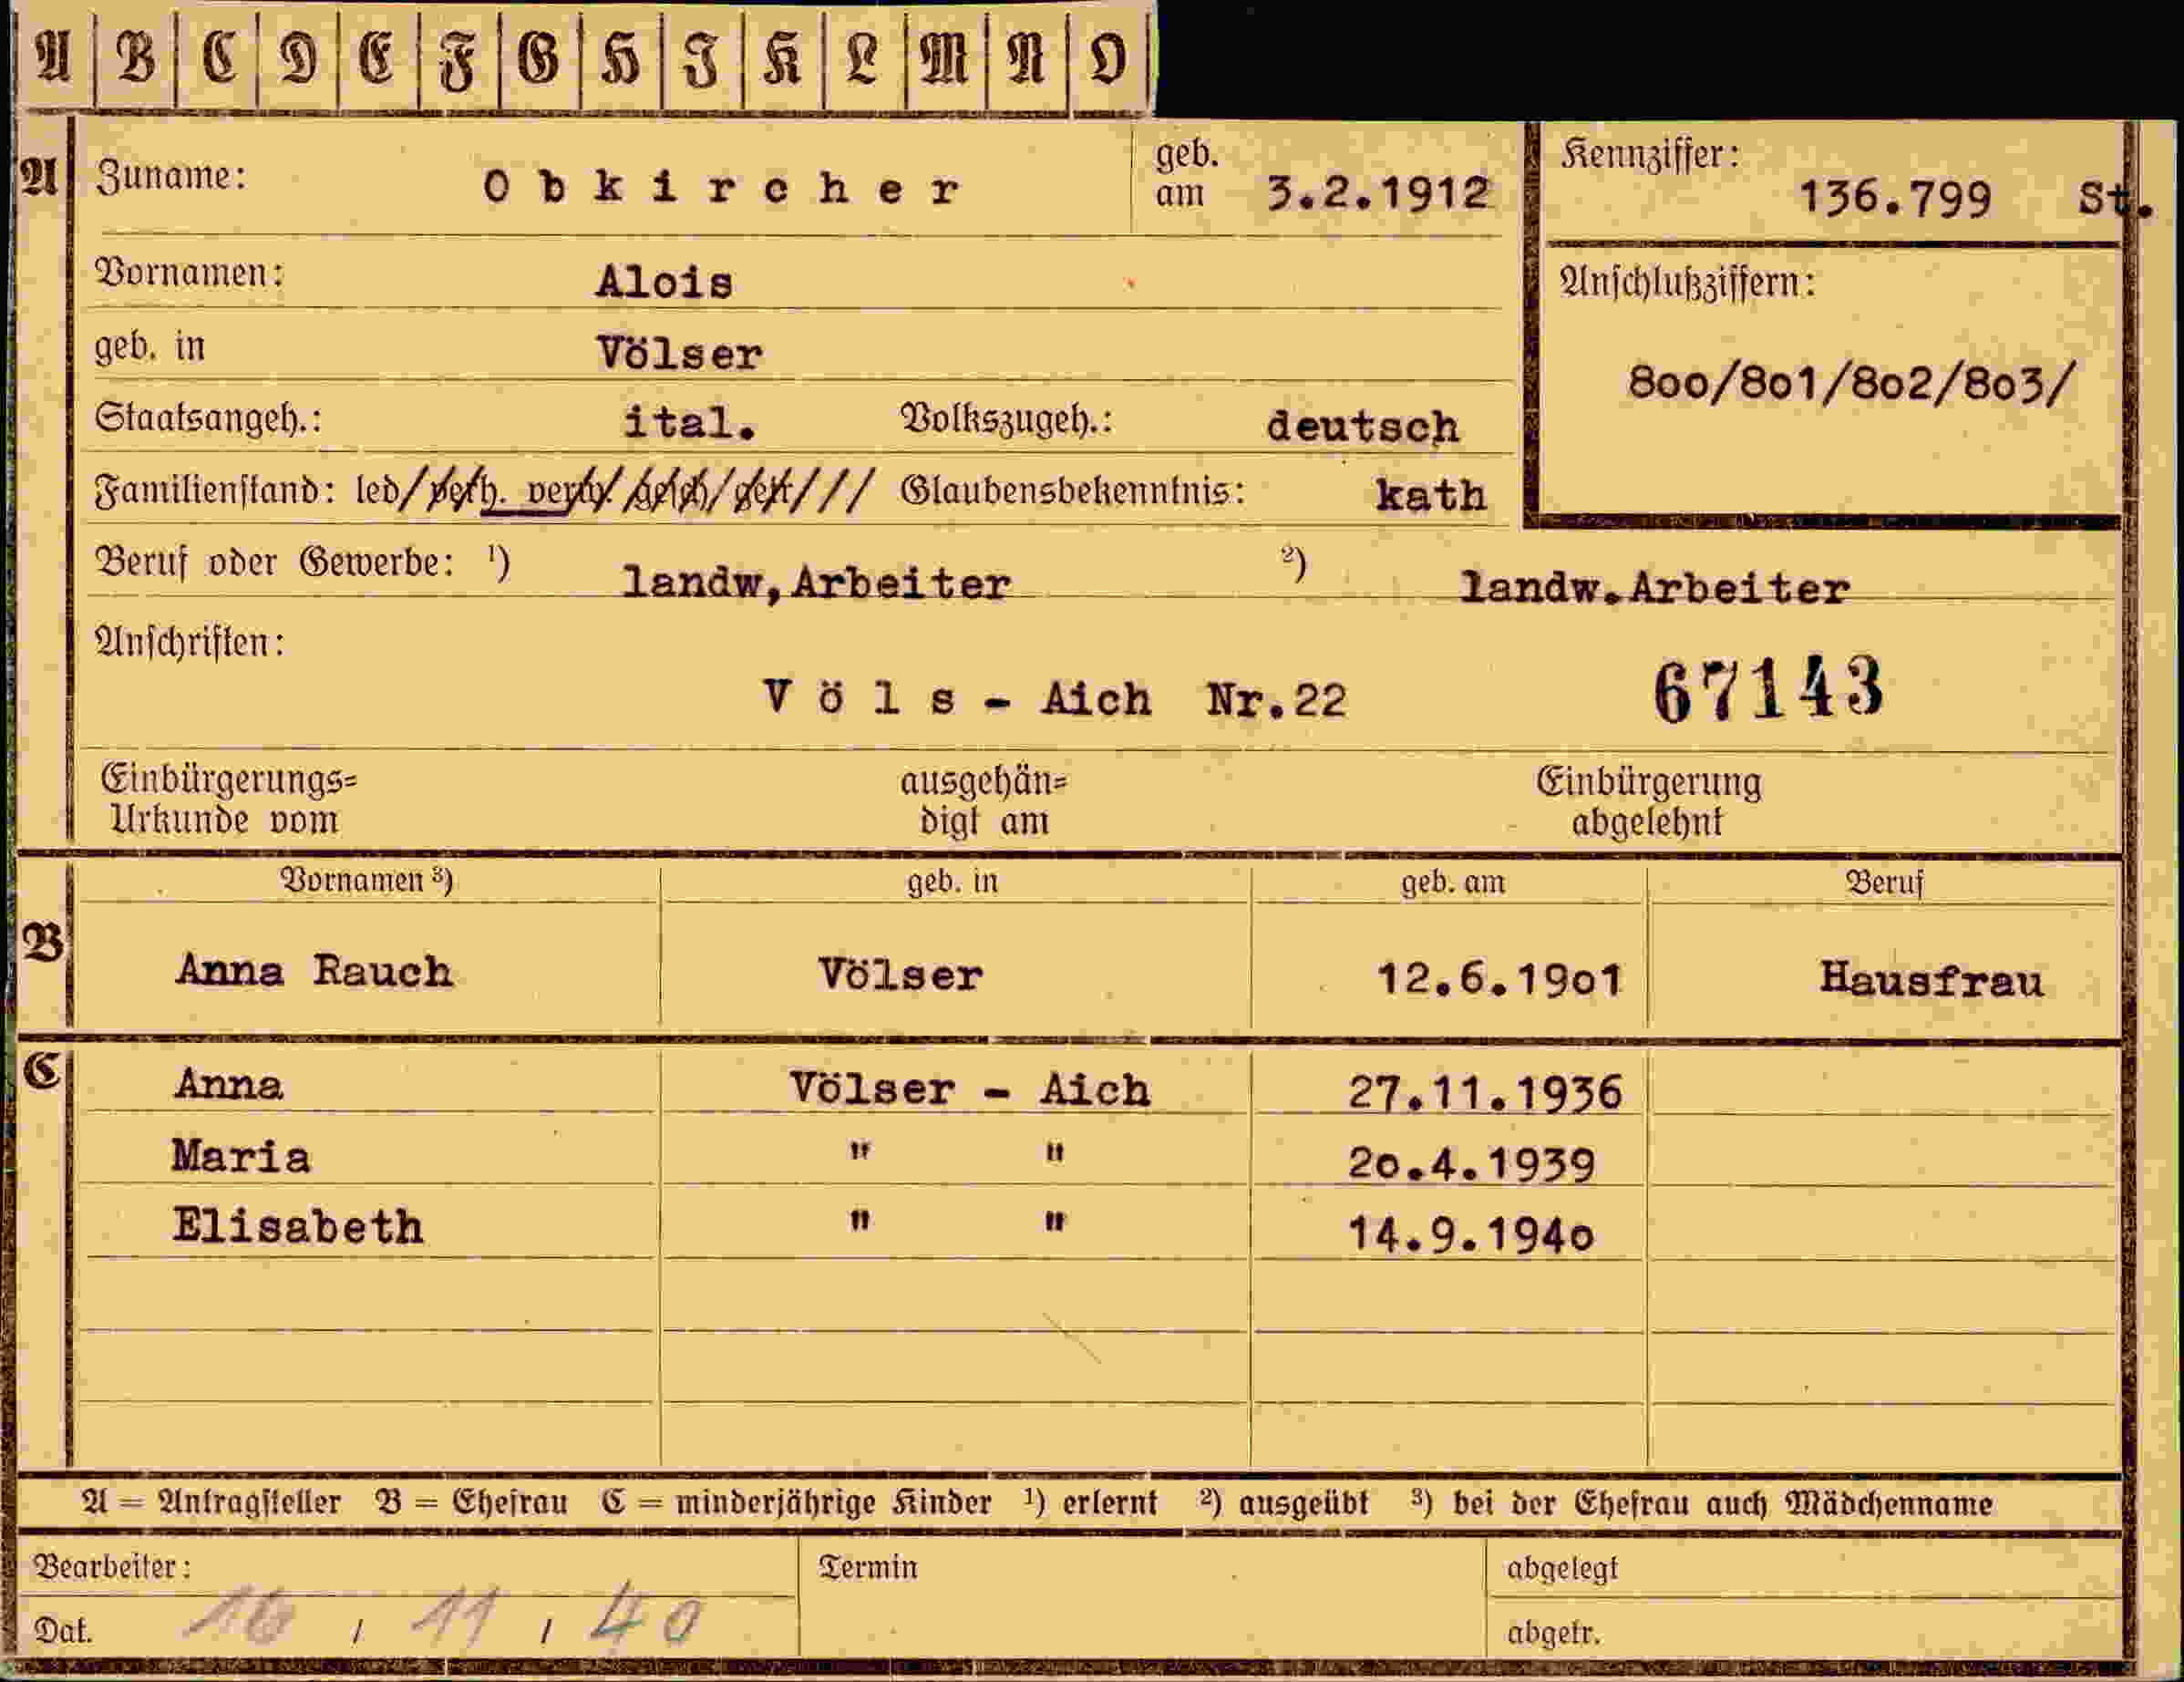 A B C D E F G H J K L M N O
A Zuname: Obkircher geb. am 3.2.1912 Kennziffer: 136.799 St.
Vornamen: Alois Anschlußziffern:
geb. in Völser 800/801/802/803/
Staatsangeh.: ital. Volkszugeh.: deutsch
Familienstand: led/verh. verw/ gesch/ get/// Glaubensbekenntnis: kath
Beruf oder Gewerbe: ¹) landw,Arbeiter ²) landw.Arbeiter
Anschriften:
Völs - Aich Nr.22 67143
Einbürgerungs= ausgehän= Einbürgerung
Urkunde vom digt am abgelehnt
Vornamen ³) geb. in geb. am Beruf
B Anna Rauch Völser 12.6.1901 Hausfrau
C Anna Völser - Aich 27.11.1936
Maria " " 20.4.1939
Elisabeth " " 14.9.1940
A = Antragsteller B = Ehefrau C = minderjährige Kinder ¹) erlernt ²) ausgeübt ³) bei der Ehefrau auch Mädchenname
Bearbeiter: Termin abgelegt
Dat. 16 / 11 / 40 abgetr.